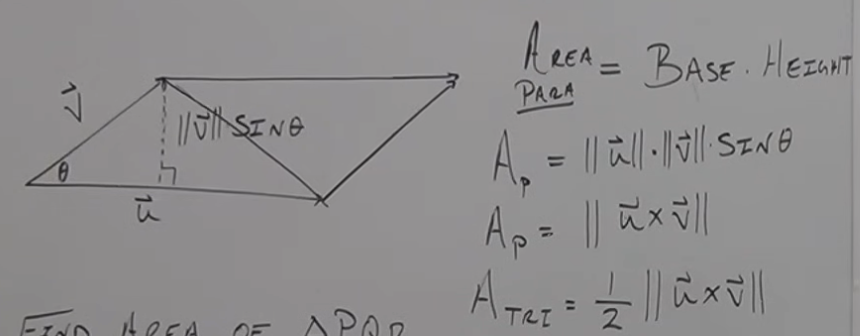 v⃗
||v⃗|| SINθ
θ
u⃗
AREA PARA = BASE · HEIGHT
A_P = ||u⃗||·||v⃗||·SINθ
A_P = ||u⃗×v⃗||
A_TRI = 1/2 ||u⃗×v⃗||
FIND AREA OF ΔPQR